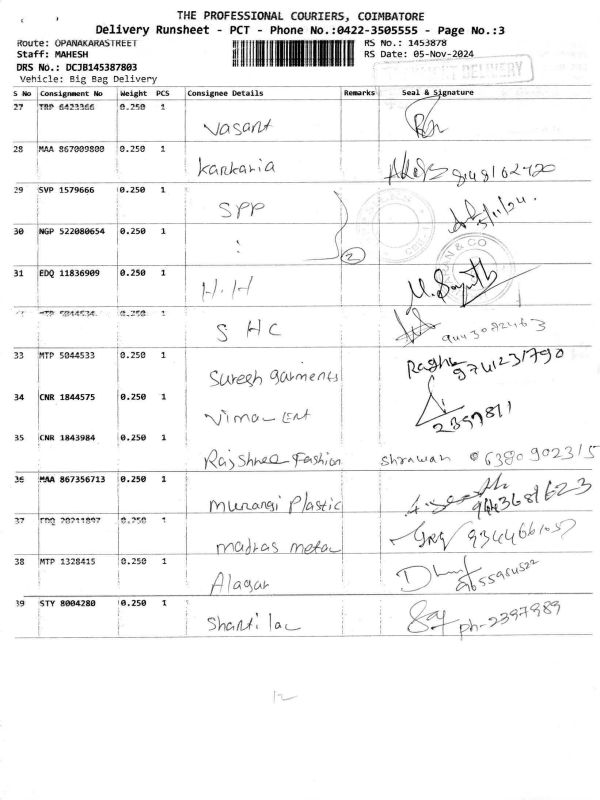 THE PROFESSIONAL COURIERS, COIMBATORE
Delivery Runsheet - PCT - Phone No.:0422-3505555 - Page No.:3
Route: OPANAKARASTREET RS No.: 1453878
Staff: MAHESH RS Date: 05-Nov-2024
DRS No.: DCJB145387803
DELIVERY
Vehicle: Big Bag Delivery
S No Consignment No Weight PCS Consignee Details Remarks Seal & Signature
27 TRP 6423366 0.250 1
Vasant
28 MAA 867009800 0.250 1
Karkaria
29 SVP 1579666 0.250 1
SPP
5/11/24.
30 NGP 522080654 0.250 1
: 2
& CO
31 EDQ 11836909 0.250 1
H.H
MTP 5044534 0.250 1
S H C 9443082463
33 MTP 5044533 0.250 1
Suresh garments Raghu
34 CNR 1844575 0.250 1
Vimal Ent 2397811
35 CNR 1843984 0.250 1
Rajshree Fashion Shrawan 6380902315
36 MAA 867356713 0.250 1
Murangi Plastic
37 EDQ 20211897 0.250 1
madras metal
38 MTP 1328415 0.250 1
Alagar 9655954522
39 STY 8004280 0.250 1
Shanti lal ph-2397989
12